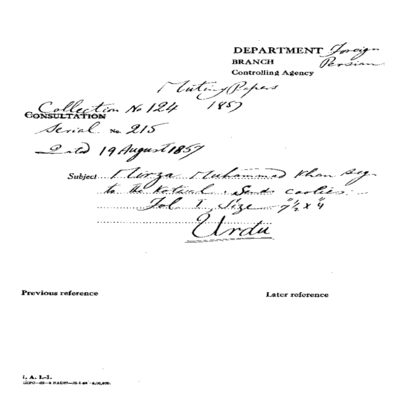 DEPARTMENT Foreign
BRANCH Persian
Controlling Agency
Mutiny Papers
Collection No 124 1857
CONSULTATION
Serial No. 215
Dated 19 August 1857
Subject Mirza Muhammad Khan
to the Kotwal. Send coolies.
Fol 1, Size 7½ x 4
Urdu
Previous reference
Later reference